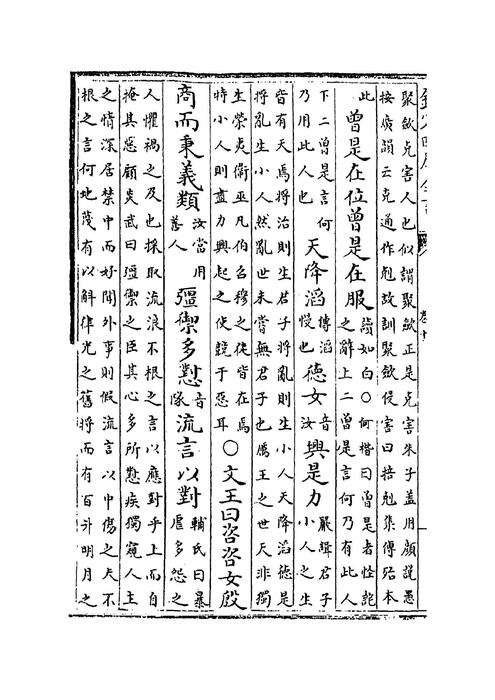 聚歛克害人也似謂聚歛正是克害朱子盖用顔説愚
按廣韻云克通作剋故訓聚歛侵害曰掊剋集傳殆本
此曾是在位曾是在服讀如白○何楷曰曾是者怪詫之辭上二曾是言何乃有此人
下二曾是言何乃用此人也天降滔傳滔慢也德女音汝興是力嚴緝君子小人之生
皆有天焉將治則生君子將亂則生小人天降滔徳是
將亂生小人然亂世未嘗無君子也厲王之世天非獨
生榮夷衛巫凡伯召穆之徒皆在焉特小人則盡力興起之使競于惡耳○文王曰咨咨女殷
商而秉義類汝當用善人彊禦多懟音隊流言以對輔氏曰暴虐多怨之
人懼禍之及也採取流浪不根之言以應對乎上而自
掩其惡顧炎武曰彊禦之臣其心多所懟疾獨窺人主
之情深居禁中而好聞外事則假流言以中傷之夫不
根之言何地蔑有以斛律光之舊將而有百升明月之